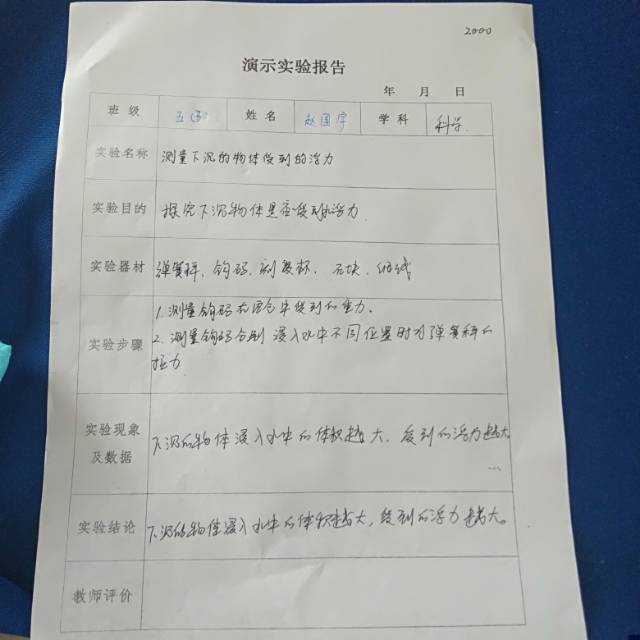 2000
演示实验报告
年 月 日
班 级 五 姓 名 赵国宇 学 科 科学
实验名称 测量下沉的物体受到的浮力
实验目的 探究下沉物体是否受到浮力
实验器材 弹簧秤、钩码、刻度杯、石块、细线
1. 测量钩码在空气中受到的重力.
2. 测量钩码分别浸入水中不同位置时对弹簧秤的
实验步骤
拉力
实验现象
及数据
下沉的物体浸入水中的体积越大,受到的浮力越大
...
实验结论 下沉的物体浸入水中的体积越大,受到的浮力越大。
教师评价